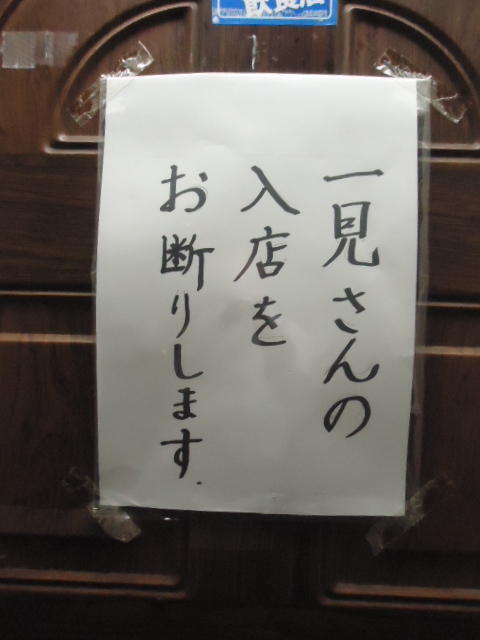 一見さんの
入店を
お断りします.